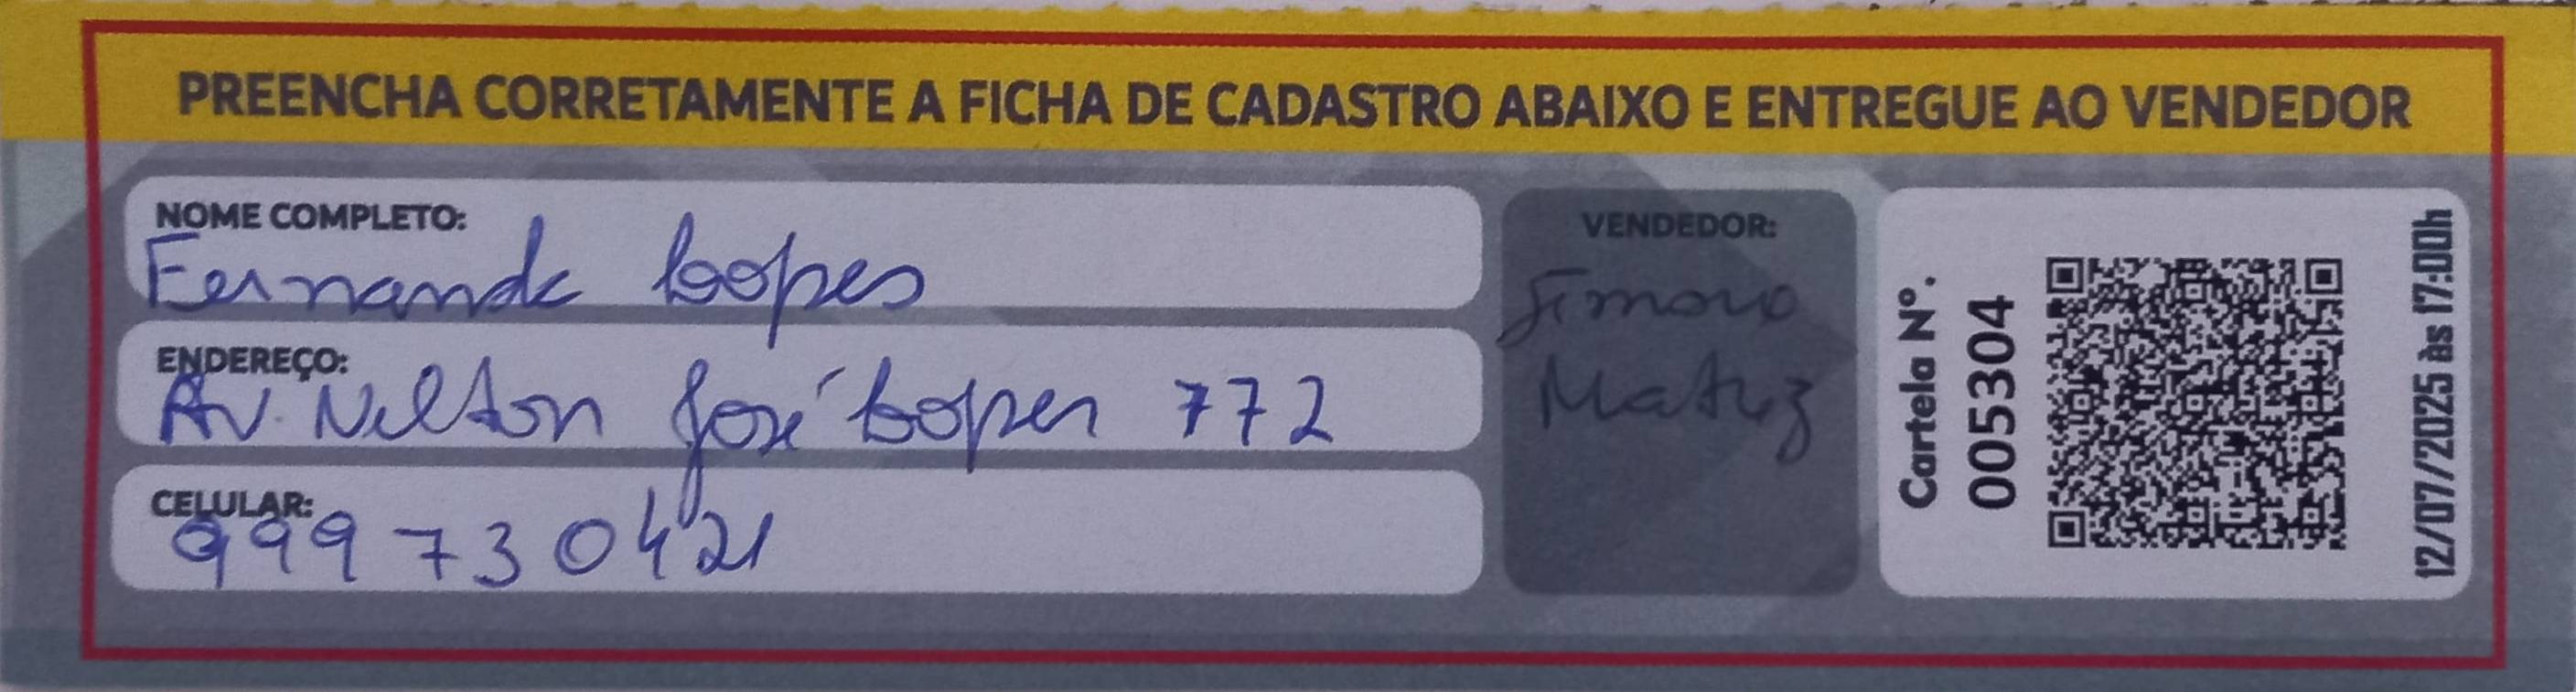 PREENCHA CORRETAMENTE A FICHA DE CADASTRO ABAIXO E ENTREGUE AO VENDEDOR
NOME COMPLETO:
Fernanda Lopes
ENDEREÇO:
Av. Nelson José Lopes 772
CELULAR:
999730421
VENDEDOR:
Cartela Nº.
005304
12/07/2025 às 17:00h